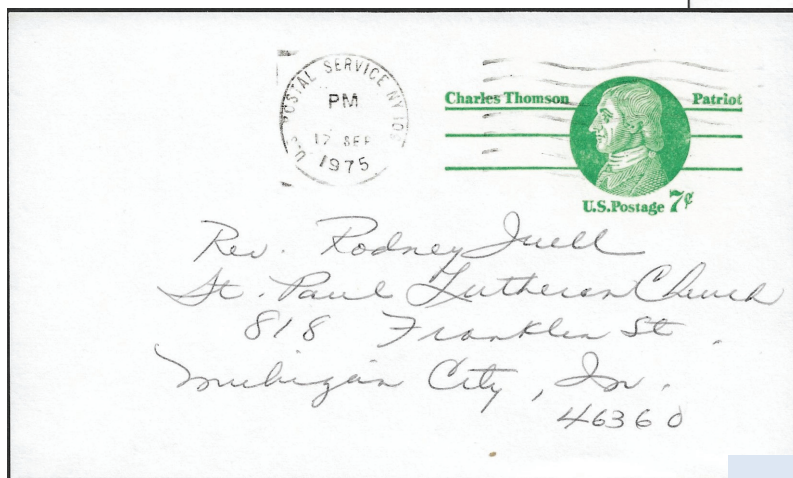 U.S. POSTAL SERVICE NY 109
PM
17 SEP
1975
Charles Thomson Patriot
U.S. Postage 7¢
Rev. Rodney Juell
St. Paul Lutheran Church
818 Franklin St.
Michigan City, In.
46360